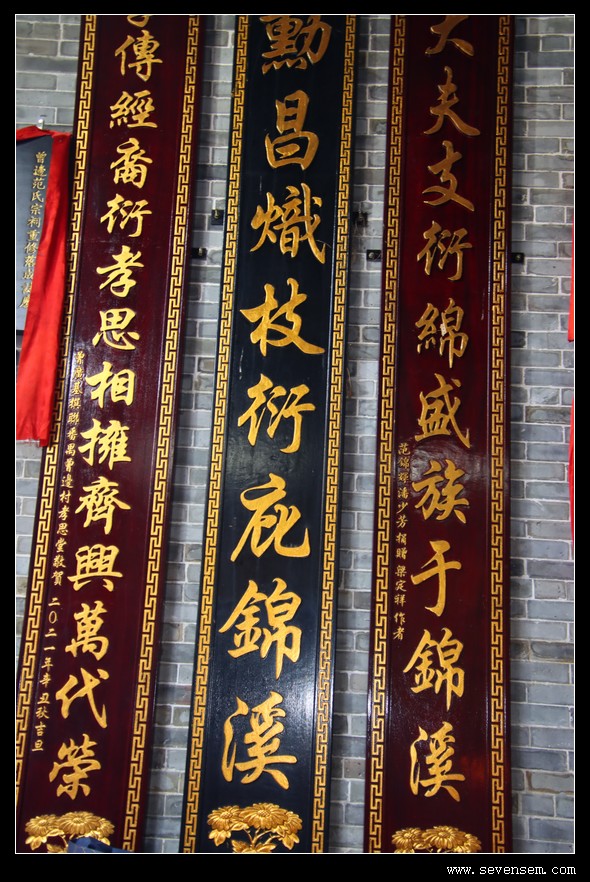 大夫支衍綿盛族于錦溪
范錦輝潘少芳捐贈梁定祥作者
勳昌熾枝衍庇錦溪
傳經裔衍孝思相擁齊興萬代榮
蕭廣基撰聯番禺曾邊村孝思堂敬賀 二〇二一年辛丑秋吉旦
曾邊范氏宗祠重修落成
www.sevensem.com